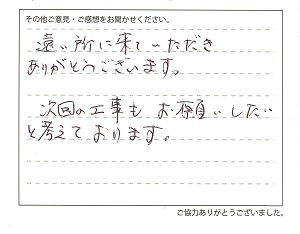 その他ご意見・ご感想をお聞かせください。
遠い所に来ていただき
ありがとうございます。
次回の工事も お願いしたい
と考えております。
ご協力ありがとうございました。